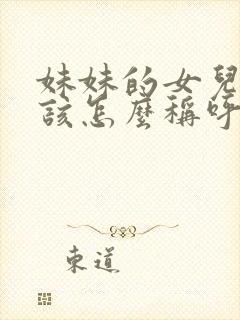 妹妹的女兒
該怎麼稱呼
東道